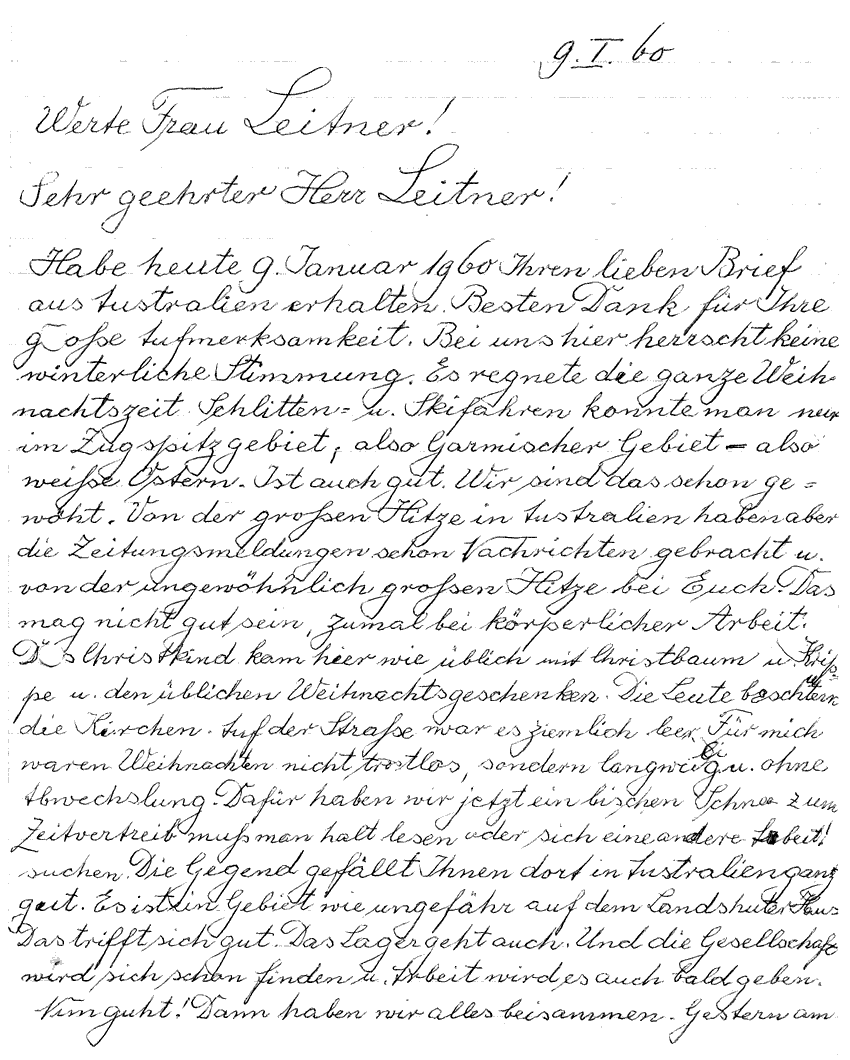 9. I. 60
Werte Frau Leitner!
Sehr geehrter Herr Leitner!
Habe heute 9. Januar 1960 Ihren lieben Brief
aus Australien erhalten. Besten Dank für Ihre
große Aufmerksamkeit. Bei uns hier herrscht keine
winterliche Stimmung. Es regnete die ganze Weih-
nachtszeit. Schlitten= u. Skifahren konnte man nur
im Zugspitzgebiet, also Garmischer Gebiet – also
weiße Ostern. Ist auch gut. Wir sind das schon ge=
wöht. Von der großen Hitze in Australien haben aber
die Zeitungsmeldungen schon Nachrichten gebracht u.
von der ungewöhnlich großen Hitze bei Euch. Das
mag nicht gut sein, zumal bei körperlicher Arbeit.
Das Christkind kam hier wie üblich mit Christbaum u. Krip-
pe u. den üblichen Weihnachtsgeschenken. Die Leute besuchten
die Kirchen. Auf der Straße war es ziemlich leer. Für mich
waren Weihnachten nicht trostlos, sondern langweilig u. ohne
Abwechslung. Dafür haben wir jetzt ein bischen Schnee zum
Zeitvertreib muß man halt lesen oder sich eine andere Arbeit!
suchen. Die Gegend gefällt Ihnen dort in Australien ganz
gut. Es ist ein Gebiet wie ungefähr auf dem Landshuter Haus
Das trifft sich gut. Das Lager geht auch. Und die Gesellschaft
wird sich schon finden u. Arbeit wird es auch bald geben.
Dann haben wir alles beisammen. Gestern am